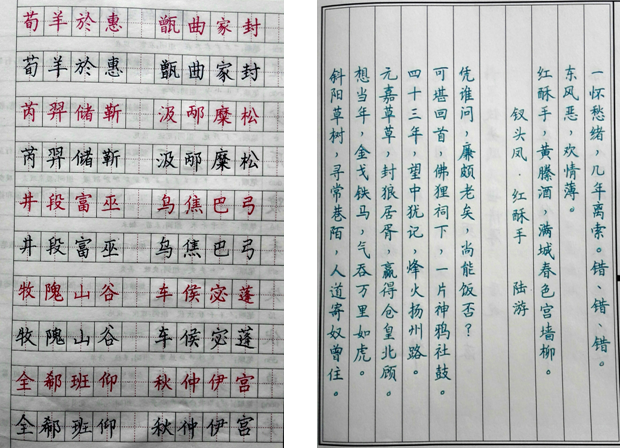 荀羊於惠 甄曲家封
荀羊於惠 甄曲家封
芮羿储靳 汲邴糜松
芮羿储靳 汲邴糜松
井段富巫 乌焦巴弓
井段富巫 乌焦巴弓
牧隗山谷 车侯宓蓬
牧隗山谷 车侯宓蓬
全郗班仰 秋仲伊宫
全郗班仰 秋仲伊宫
斜阳草树，寻常巷陌，人道寄奴曾住。
想当年，金戈铁马，气吞万里如虎。
元嘉草草，封狼居胥，赢得仓皇北顾。
四十三年，望中犹记，烽火扬州路。
可堪回首，佛狸祠下，一片神鸦社鼓。
凭谁问，廉颇老矣，尚能饭否？
钗头凤·红酥手 陆游
红酥手，黄縢酒，满城春色宫墙柳。
东风恶，欢情薄。
一怀愁绪，几年离索。错、错、错。